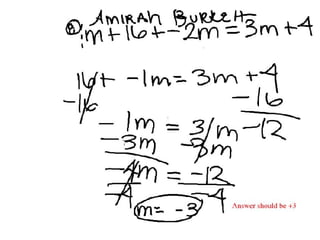 ② AMIRAH BURKETT
m+16+-2m=3m+4
16+ -1m=3m+4
-16 -16
-1m = 3m-12
-3m -3m
-4m = -12
-4 -4
m= -3 Answer should be +3